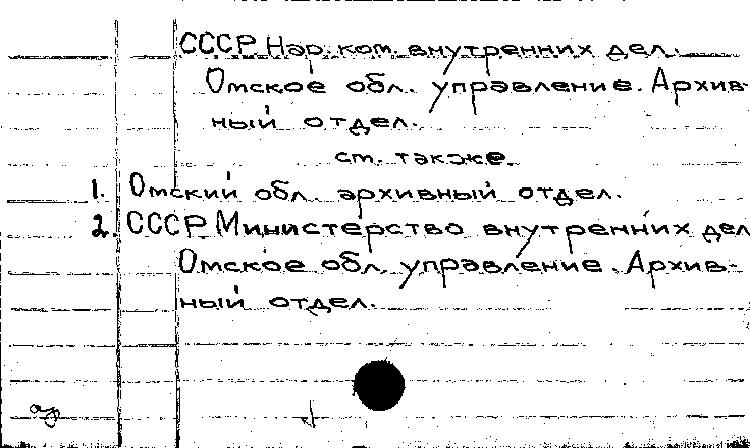 СССР Нар. ком. внутренних дел.
Омское обл. управление. Архив-
ный отдел.
см. также.
1. Омский обл. архивный отдел.
2. СССР Министерство внутренних дел
Омское обл. управление. Архив-
ный отдел.